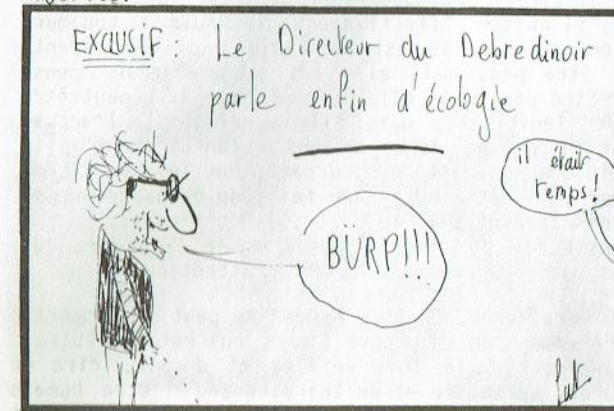 EXCLUSIF : Le Directeur du Debredinoir
parle enfin d'écologie
il était
temps !
BURP!!!